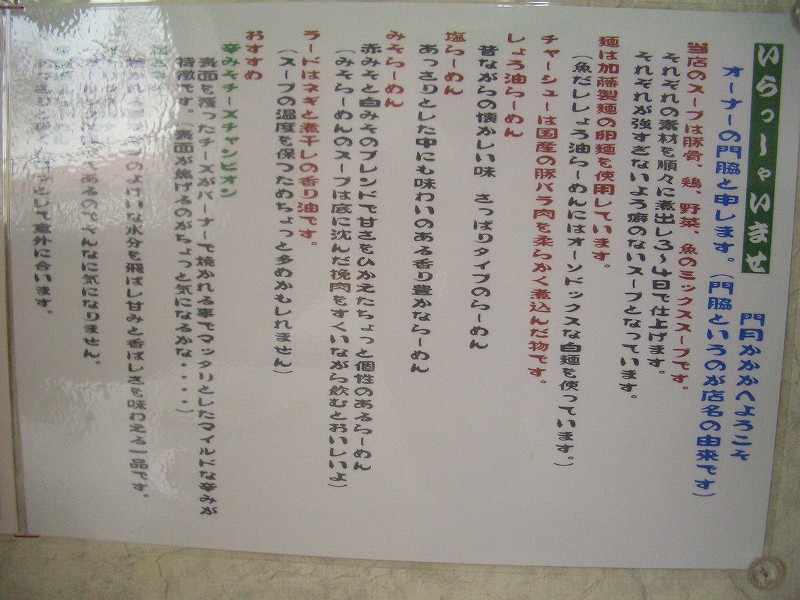 いらっしゃいませ
門月かかかへようこそ
オーナーの門脇と申します。(門脇というのが店名の由来です)
当店のスープは豚骨、鶏、野菜、魚のミックススープです。
それぞれの素材を順々に煮出し3～4日で仕上げます。
それぞれが強すぎないよう癖のないスープとなっています。
麺は加藤製麺の卵麺を使用しています。
(魚だししょう油らーめんにはオーソドックスな白麺を使っています。)
チャーシューは国産の豚バラ肉を柔らかく煮込んだ物です。
しょう油らーめん
昔ながらの懐かしい味 さっぱりタイプのらーめん
塩らーめん
あっさりとした中にも味わいのある香り豊かならーめん
みそらーめん
赤みそと白みそのブレンドで甘さをひかえたちょっと個性のあるらーめん
(みそらーめんのスープは底に沈んだ挽肉をすくいながら飲むとおいしいよ)
ラードはネギと煮干しの香り油です。
(スープの温度を保つためちょっと多めかもしれません)
おすすめ
辛みそチーズチャンピオン
表面を覆ったチーズがバーナーで焼かれる事でマッタリとしたマイルドな辛みが
特徴です。(表面が焦げるのがちょっと気になるかな・・・・)
よけいな水分を飛ばし甘みと香ばしさを味わえる一品です。
であるのでそんなに気になりません。
として意外に合います。